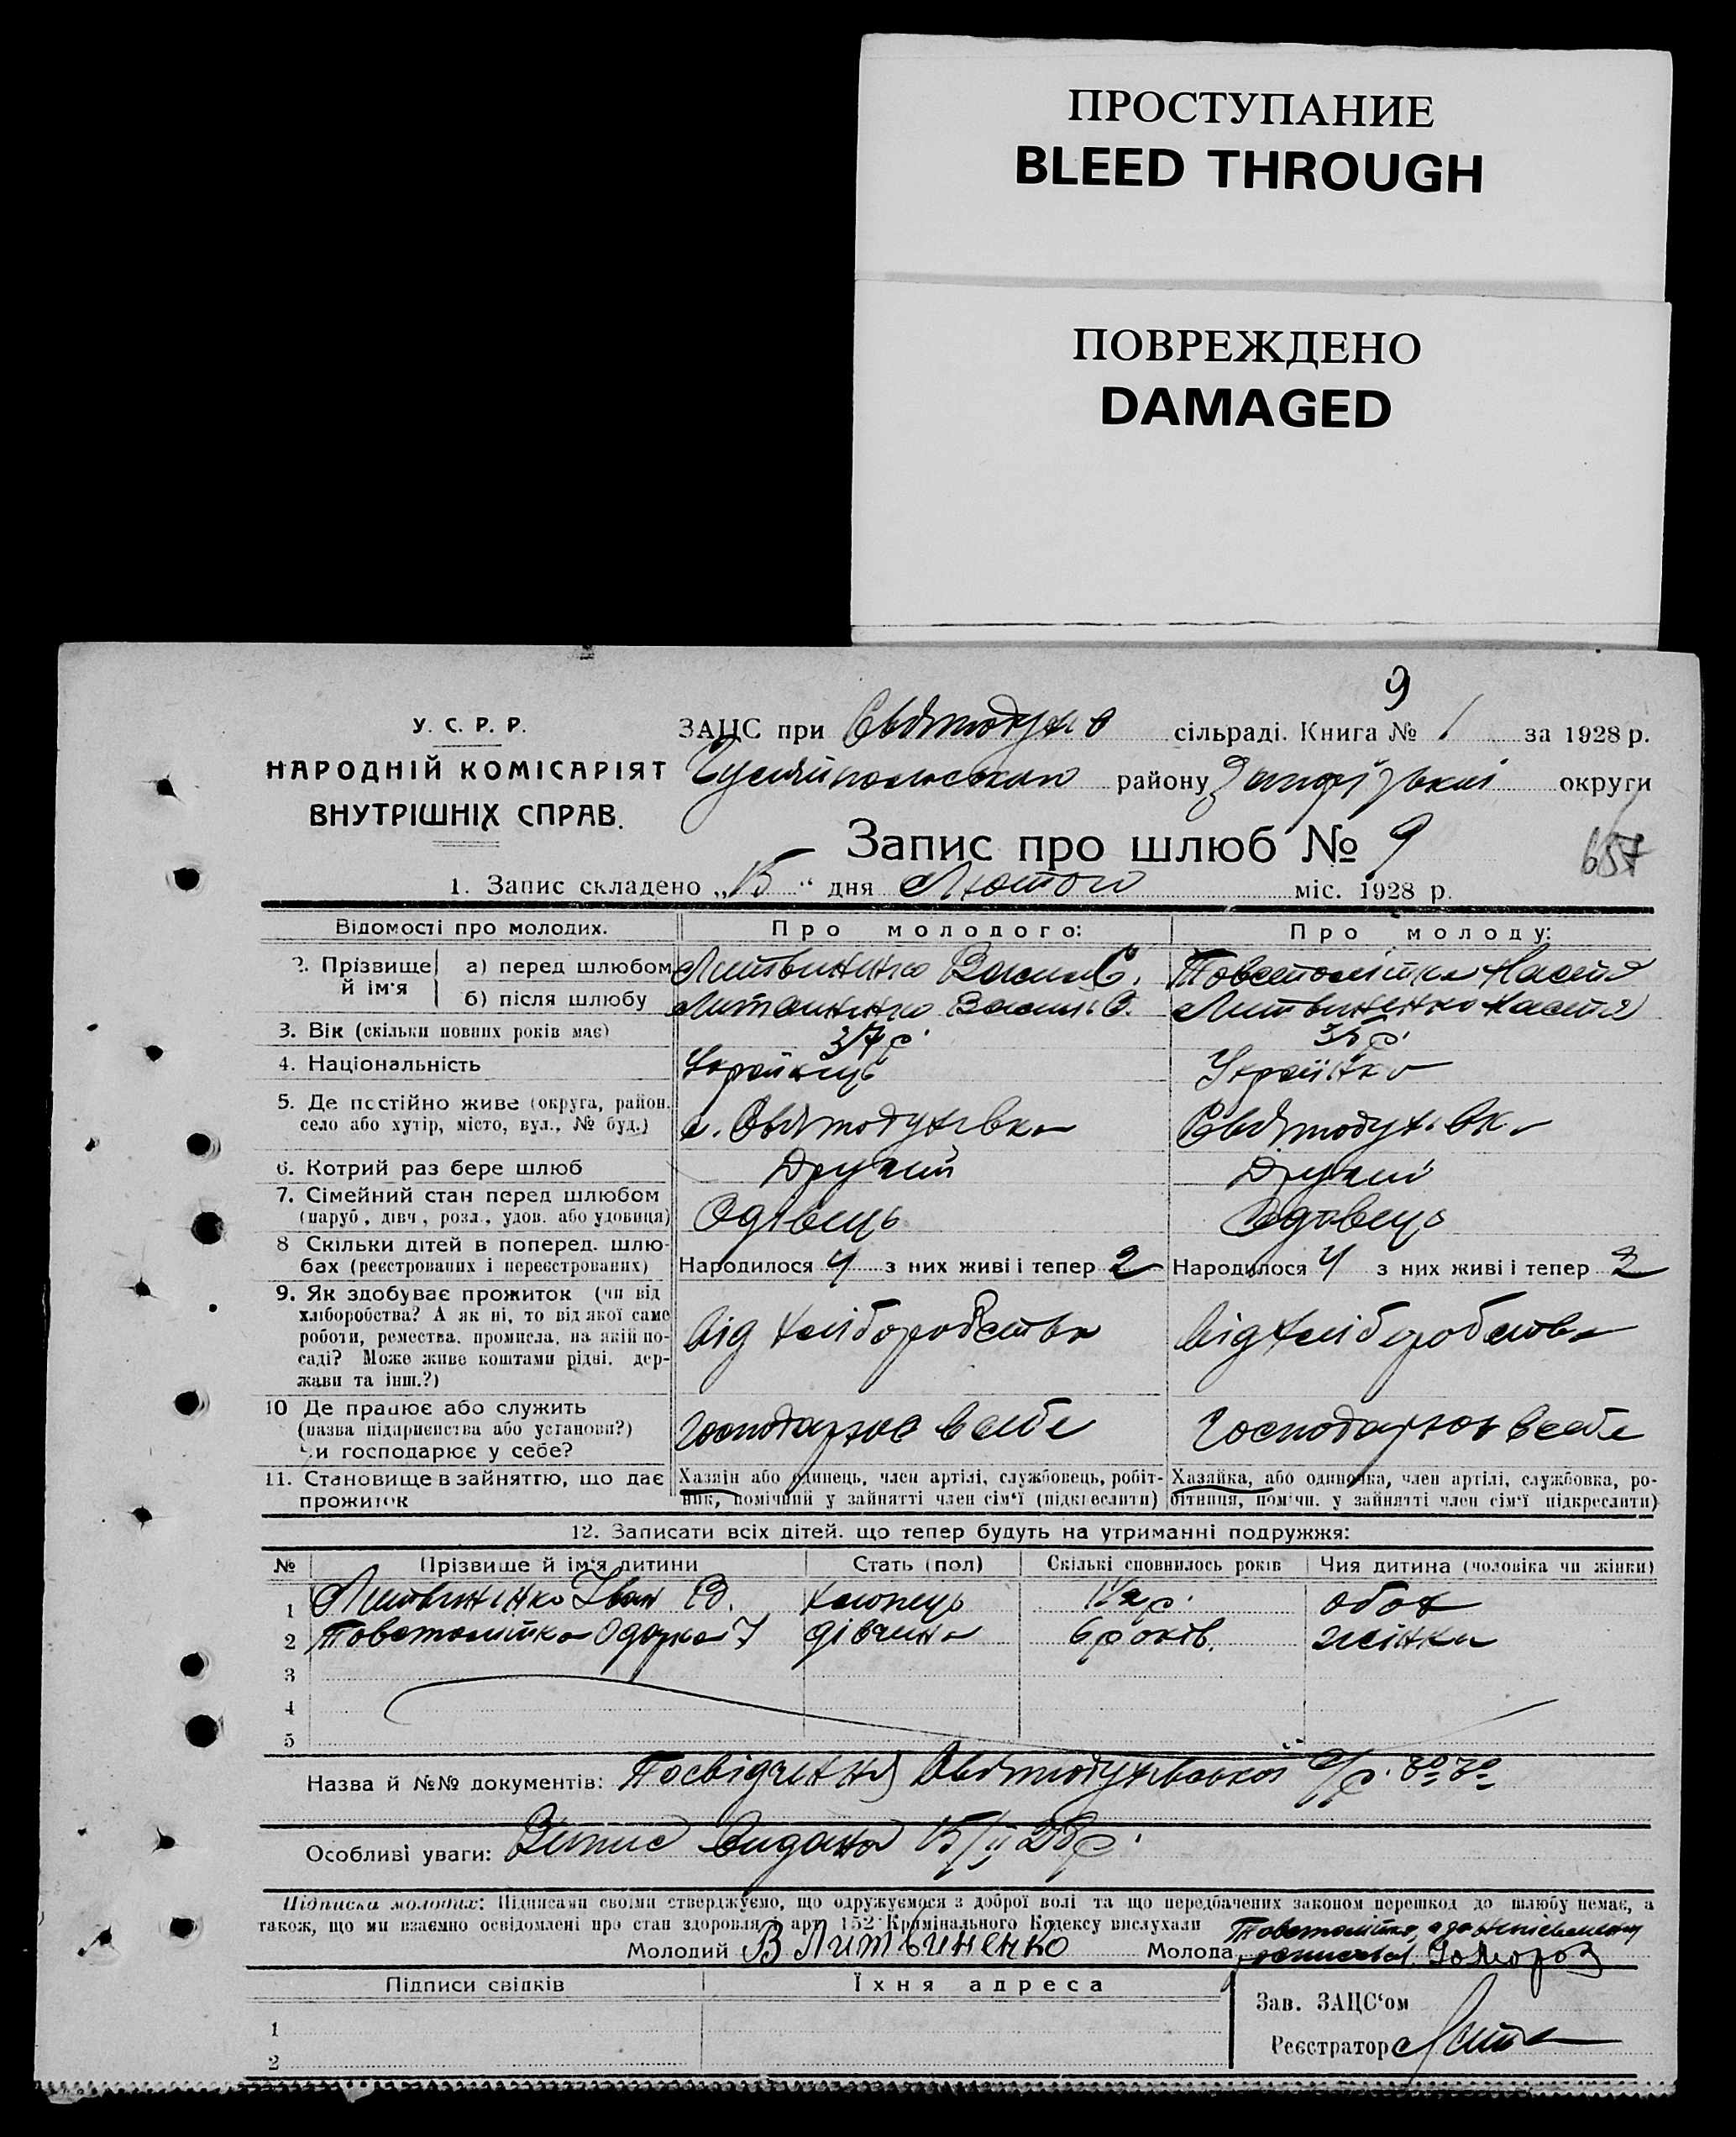 ПРОСТУПАНИЕ
BLEED THROUGH
ПОВРЕЖДЕНО
DAMAGED
9
У. С. Р. Р.
НАРОДНІЙ КОМІСАРІЯТ
ВНУТРІШНІХ СПРАВ.
ЗАЦС при Святодухів сільраді. Книга № 1 за 1928 р.
району округи
Запис про шлюб № 9
657
1. Запис складено „15“ дня Лютого міс. 1928 р.
Відомості про молодих. Про молодого: Про молоду:
2. Прізвище й ім'я а) перед шлюбом Литвиненко Василь С. Товстолітка Настя
б) після шлюбу Литвиненко Василь С. Литвиненко Настя
3. Вік (скільки повних років має) 37 р. 35 р.
4. Національність Українець Українка
5. Де постійно живе (округа, район, с. Святодухівка Святодухівка
село або хутір, місто, вул., № буд.)
6. Котрий раз бере шлюб Другий Другий
7. Сімейний стан перед шлюбом Одівець Одовець
(паруб., дівч., розл., удов. або удовиця)
8 Скільки дітей в поперед. шлю-
бах (реєстрованих і нереєстрованих) Народилося 4 з них живі і тепер 2 Народилося 4 з них живі і тепер 2
9. Як здобуває прожиток (чи від
хліборобства? А як ні, то від якої саме
роботи, ремества, промисла, на якій по- від хліборобства від хліборобства
саді? Може живе коштами рідні, дер-
жави та інш.?)
10 Де працює або служить
(назва підприєнства або установи?) господарює в себе господарює в себе
Чи господарює у себе?
11. Становище в зайняттю, що дає Хазяїн або одинець, член артілі, службовець, робіт- Хазяйка, або одиночка, член артілі, службовка, ро-
прожиток ник, помічний у зайнятті член сім'ї (підкреслити) бітниця, помічн. у зайнятті член сім'ї підкреслити)
12. Записати всіх дітей, що тепер будуть на утриманні подружжя:
№ Прізвище й ім'я дитини Стать (пол) Скількі сповнилось років Чия дитина (чоловіка чи жінки)
1 Литвиненко Іван В. хлопець 1½ р. обох
2 Товстолитка Одарка І дівчина 6 років. жінки
3
4
5
Назва й №№ документів: Посвідчення Святодухівської с/р.
Особливі уваги: Випис видано 15/II 28 р.
Підписи молодих: Підписами своїми стверджуємо, що одружуємося з доброї волі та що передбачених законом перешкод до шлюбу немає, а
також, що ми взаємно освідомлені про стан здоровля і арт. 152 Кримінального Кодексу вислухали Товстолитка, а за неписьменну
Молодий В Литьвиненко Молода розписався Мороз
Підписи свідків Їхня адреса
Зав. ЗАЦС'ом
1
Реєстратор
2